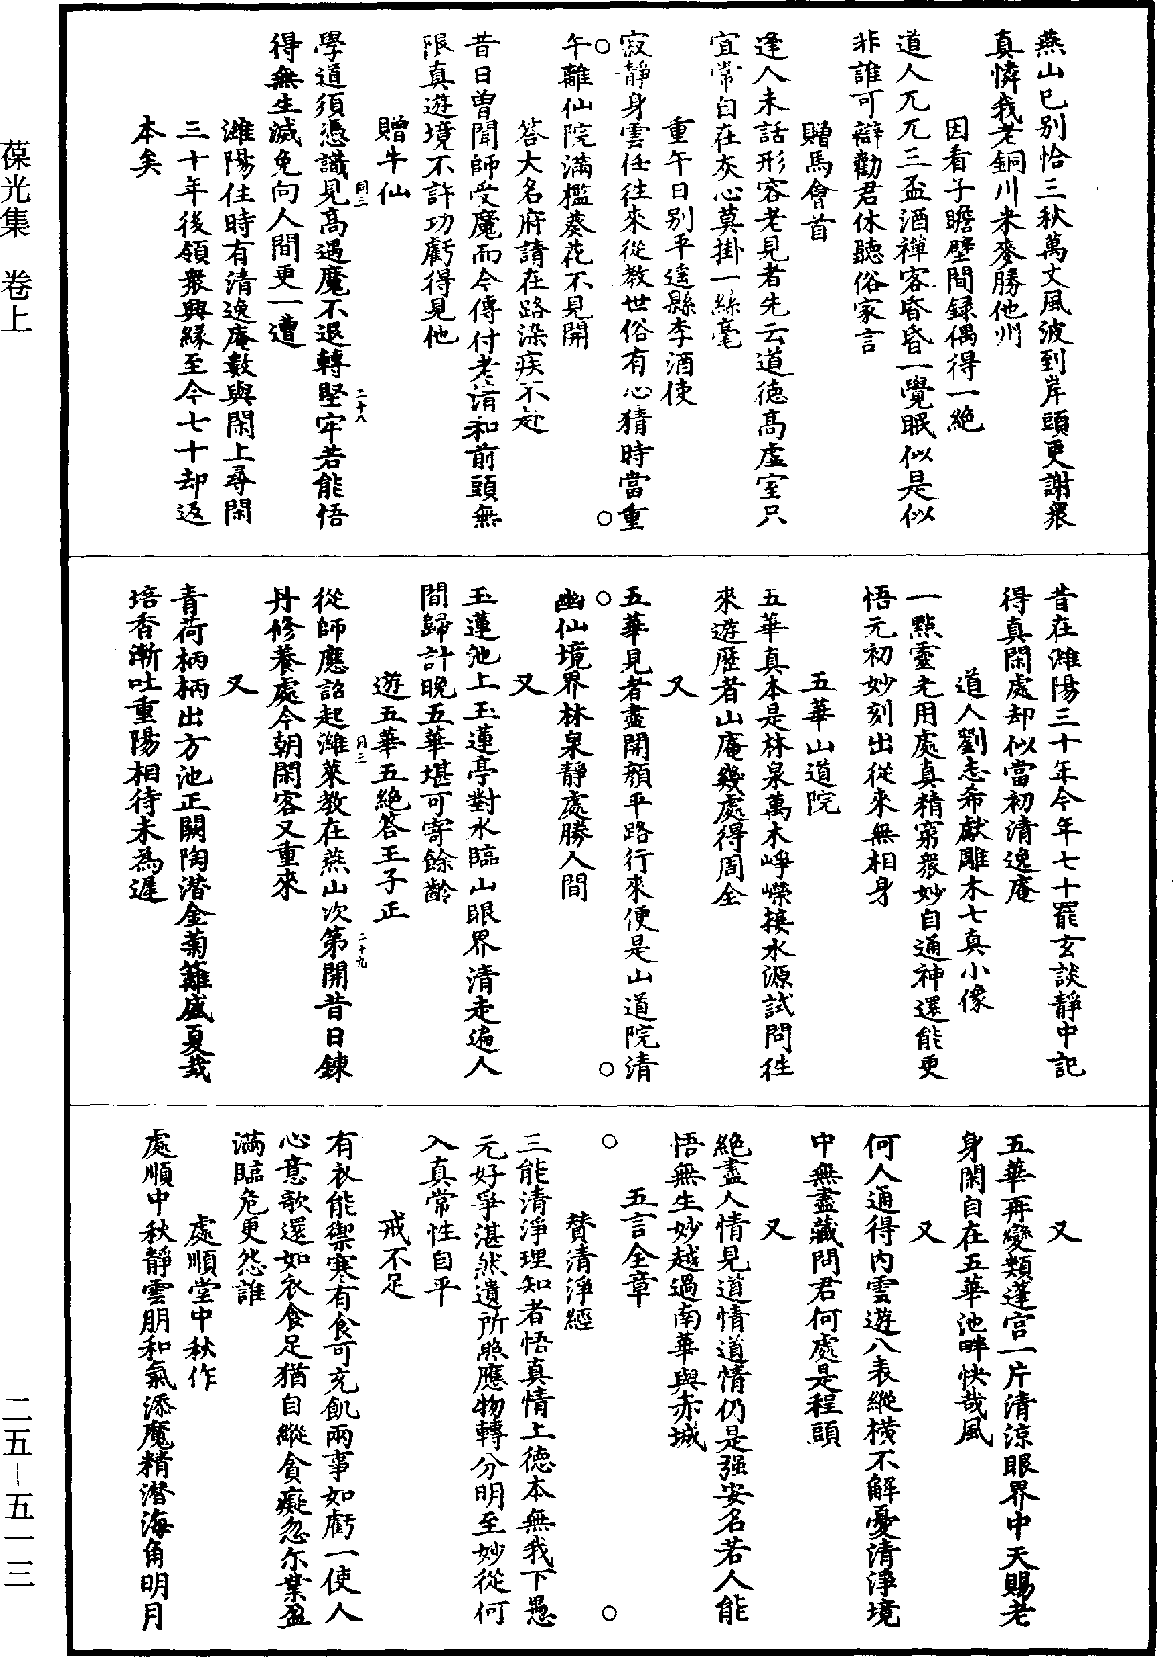 葆光集　卷上
燕山已別恰三秋萬丈風波到岸頭更謝衆
真憐我老銅川米麥勝他州
因看子瞻壁間録偶得一絶
道人兀兀三盃酒禪客昏昏一覺眠似是似
非誰可辯勸君休聽俗家言
贈馬會首
逢人未話形容老見者先云道德高虛室只
宜常自在灰心莫掛一絲毫
重午日別平遥縣李酒使
寂靜身雲任往來從教世俗有心猜時當重
午離仙院滿檻葵花不見開
答大名府請在路染疾不赴
昔日曽聞師受魔而今傳付老清和前頭無
限真遊境不許功虧得見他
贈牛仙
學道須憑識見高遇魔不退轉堅牢若能悟
得無生滅免向人間更一遭
濰陽住時有清逸庵數與閑上尋閑
三十年後領衆興緣至今七十却返
本矣
昔在濰陽三十年今年七十罷玄談靜中記
得真閑處却似當初清逸庵
道人劉志希獻雕木七真小像
一點靈光用處真精窮衆妙自通神還能更
悟元初妙刻出從來無相身
五華山道院
五華真本是林泉萬木崢嶸接水源試問往
來遊歷者山庵幾處得周全
又
五華見者盡開顔平路行來便是山道院清
幽仙境界林泉靜處勝人間
又
玉蓮池上玉蓮亭對水臨山眼界清走遍人
間歸計晚五華堪可寄餘齡
遊五華五絶答王子正
從師應詔起濰萊教在燕山次第開昔日鍊
丹修養處今朝閑客又重來
又
青荷柄柄出方池正闘陶潜金菊籬盛夏栽
培香漸吐重陽相待未為遲
又
五華再變類蓬宫一片清涼眼界中天賜老
身閑自在五華池畔快哉風
又
何人通得内雲遊八表縱横不解憂清淨境
中無盡藏問君何處是程頭
又
絶盡人情見道情道情仍是强安名若人能
悟無生妙越過南華與赤城
五言全章
贊清淨經
三能清淨理知者悟真情上德本無我下愚
元好爭湛然遺所照應物轉分明至妙從何
入真常性自平
戒不足
有衣能禦寒有食可充飢兩事如虧一使人
心意歌還如衣食足猶自縱貪癡忽尔業盈
滿臨危更怨誰
處順堂中秋作
處順中秋靜雲朋和氣添魔精潜海角明月
二五－五一三